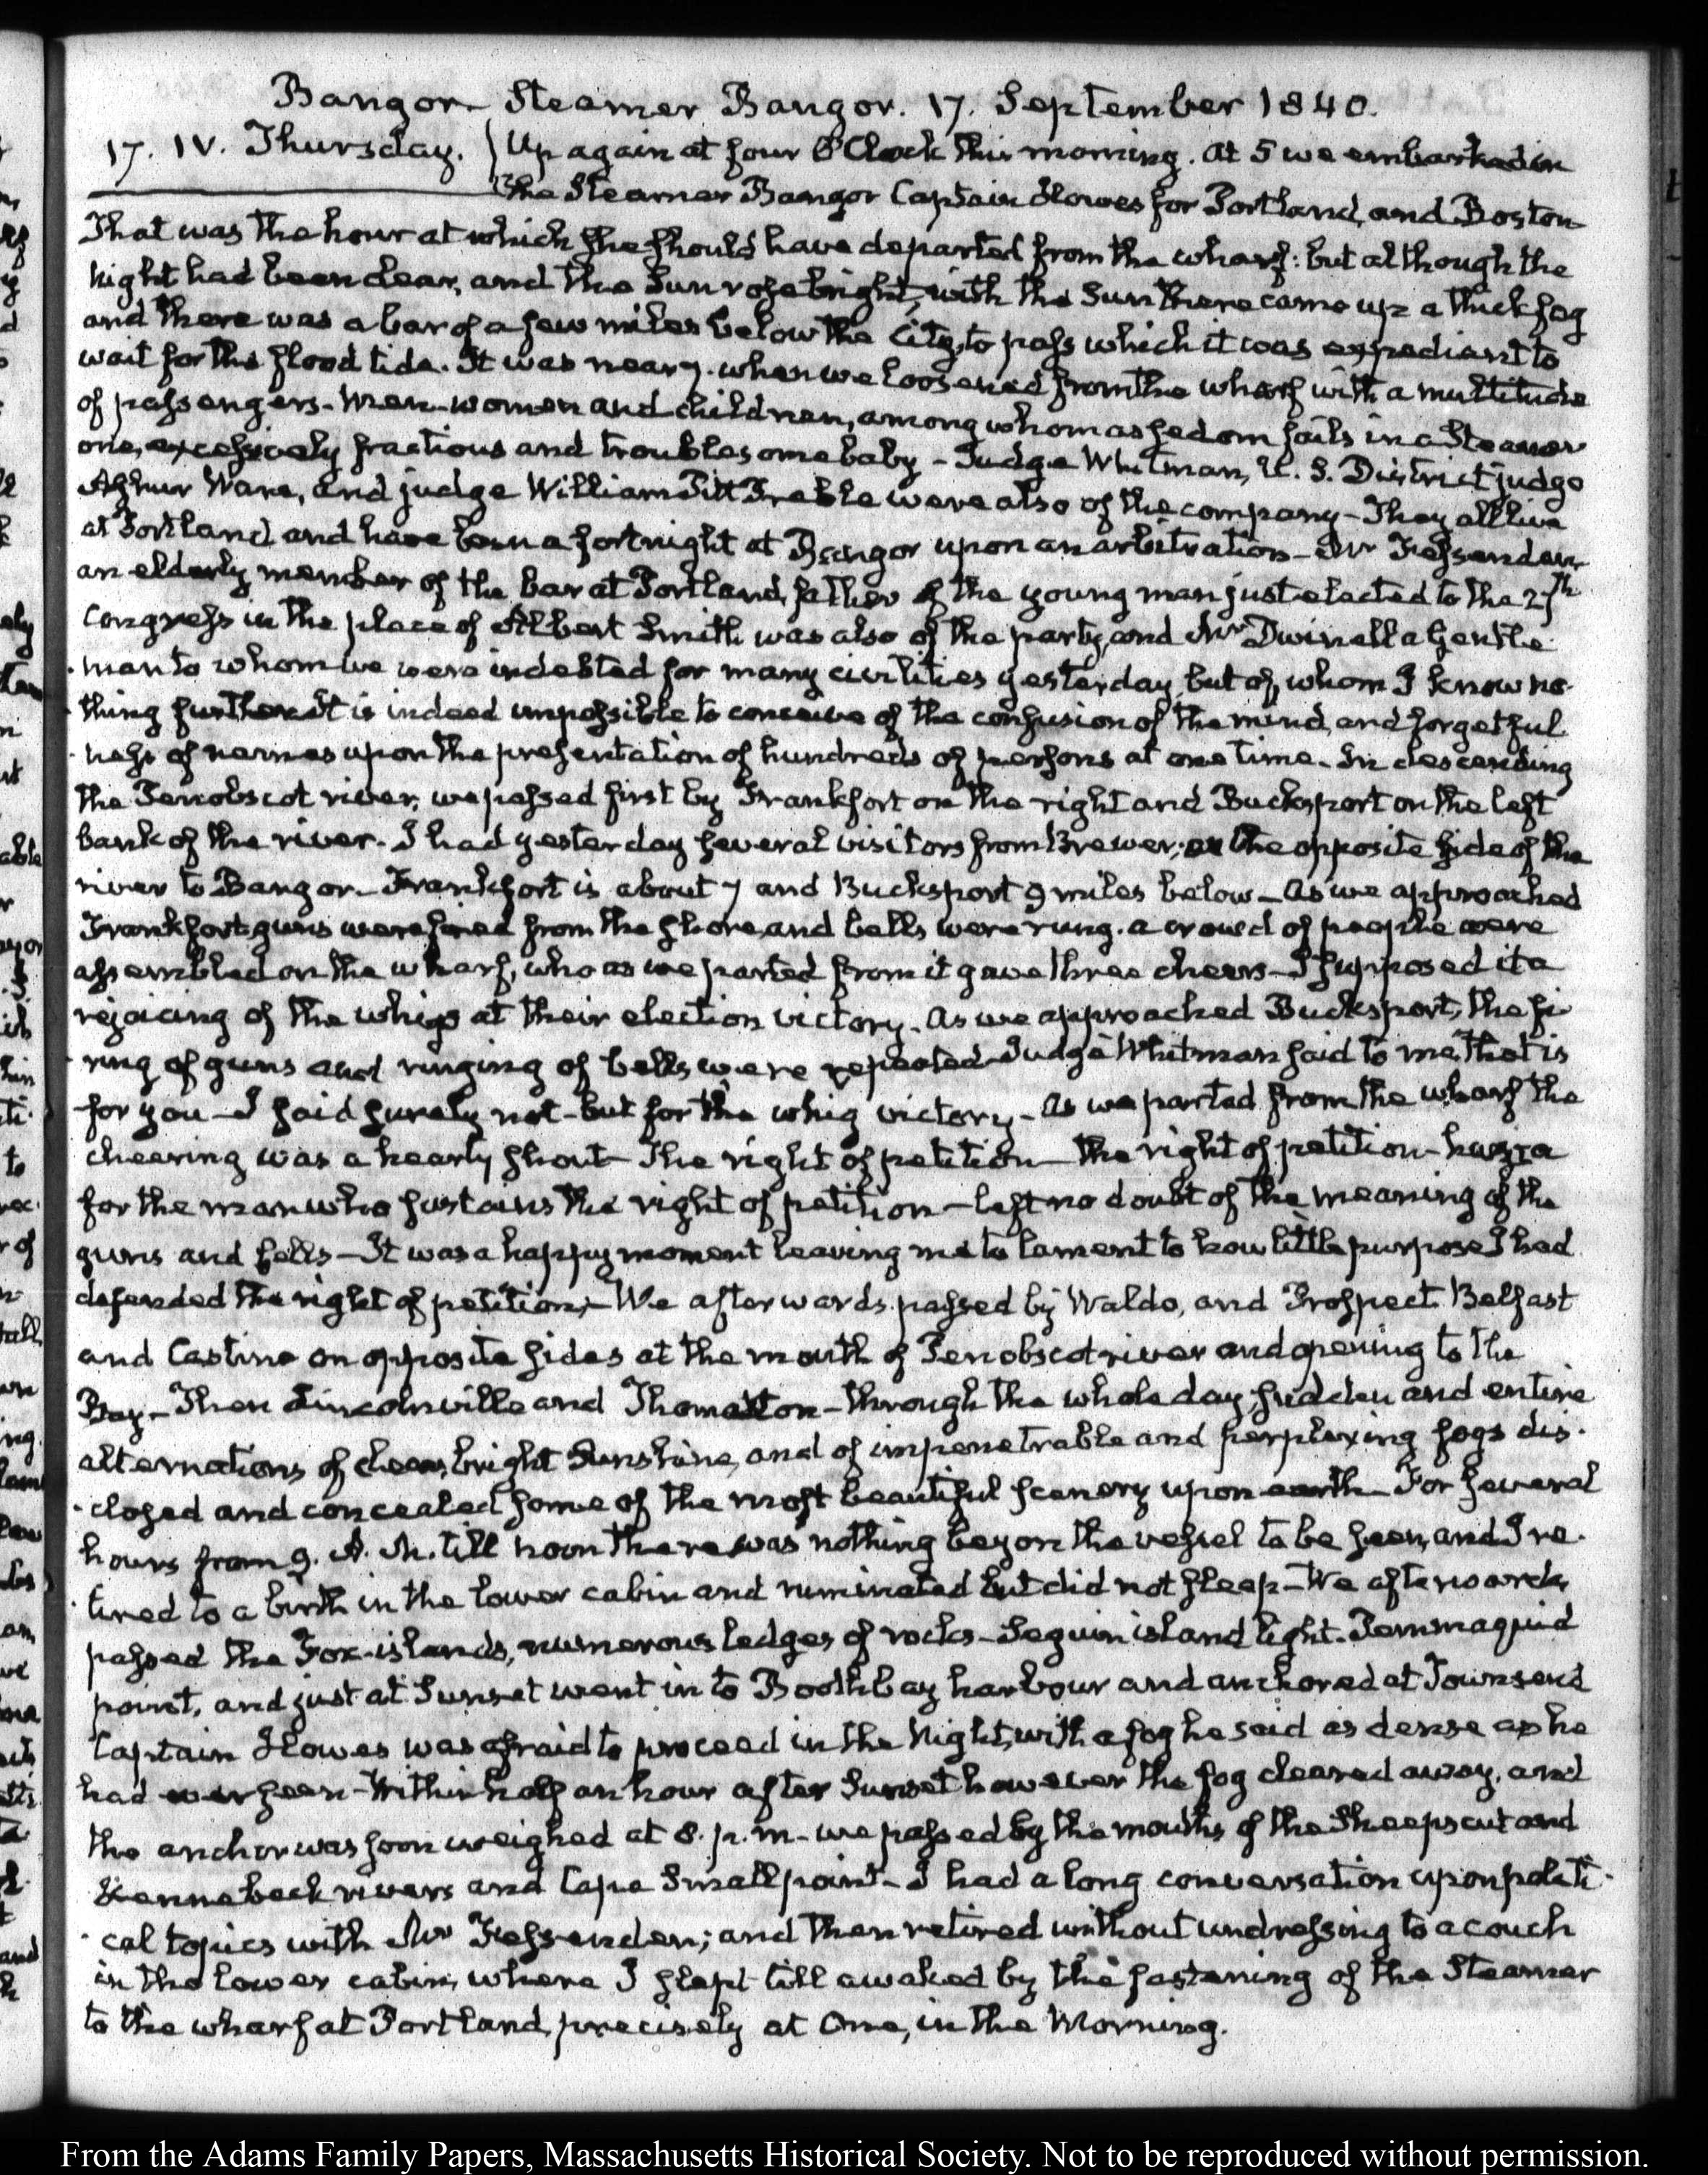 Bangor – Steamer Bangor. 17. September 1840.
17. IV. Thursday. Up again at four O'Clock this morning. At 5 we embarked in
the Steamer Bangor Captain Howes for Portland, and Boston
That was the hour at which she should have departed from the wharf: but although the
Night had been clear, and the Sun rose bright, with the Sun there came up a thick fog
and there was a bar of a few miles below the City, to pass which it was expedient to
wait for the flood tide. It was near 7. when we loosened from the wharf with a multitude
of passengers – Men – women and children, among whom as seldom fails in a Steamer
one, excessively fractious and troublesome baby – Judge Whitman, U. S. District judge
Ashur Ware, and judge William Pitt Preble were also of the company – They all live
at Portland and have been a fortnight at Bangor upon an arbitration – Mr Fessenden
an elderly member of the bar at Portland, father of the young man just elected to the 27th
Congress in the place of Albert Smith was also of the party, and Mr Dwinell a Gentle-
-man to whom we were indebted for many civilities yesterday, but of whom I know no-
-thing further. It is indeed impossible to conceive of the confusion of the mind, and forgetful
-ness of names upon the presentation of hundreds of persons at one time. In descending
the Penobscot river, we passed first by Frankfort on the right and Bucksport on the left
bank of the river. I had yesterday several visitors from Brewer; on the opposite side of the
river to Bangor – Frankfort is about 7 and Bucksport 9 miles below – As we approached
Frankfort, guns were fired from the shore, and bells were rung. a crowd of people were
assembled on the wharf, who as we parted from it gave three cheers – I supposed it a
rejoicing of the whigs at their election victory. As we approached Bucksport, the fi-
-ring of guns and ringing of bells were repeated – Judge Whitman said to me, That is
for you – I said surely not – but for the whig victory – As we parted from the wharf the
cheering was a hearty shout – The right of petition – the right of petition – huzza
for the man who sustains the right of petition – left no doubt of the meaning of the
guns and bells – It was a happy moment leaving me to lament to how little purpose I had
defended the right of petition, – We afterwards passed by Waldo, and Prospect. Belfast
and Castine on opposite sides at the mouth of Penobscot river and opening to the
Bay – Then Lincolnville and Thomaston – through the whole day, sudden and entire
alternations of clear, bright Sunshine, and of impenetrable and perplexing fogs dis-
-closed and concealed some of the most beautiful scenery upon earth – For several
hours from 9. A. M. till noon there was nothing beyon the vessel to be seen, and I re-
-tired to a birth in the lower cabin and ruminated but did not sleep – We afterwards
passed the Fox-islands, numerous ledges of rocks – Seguin island light. Pemmaquid
point, and just at Sunset went in to Boothbay harbour and anchored at Townsend
Captain Howes was afraid to proceed in the Night, with a fog he said as dense as he
had ever seen – Within half an hour after Sunset however the fog cleared away, and
the anchor was soon weighed at 8. p. m. – we passed by the mouths of the Sheepscut and
Kennebeck rivers and Cape Small point – I had a long conversation upon politi-
-cal topics with Mr Fessenden; and then retired without undressing to a couch
in the lower cabin, where I slept till awaked by the fastening of the Steamer
to the wharf at Portland, precisely at One, in the Morning.
From the Adams Family Papers, Massachusetts Historical Society. Not to be reproduced without permission.